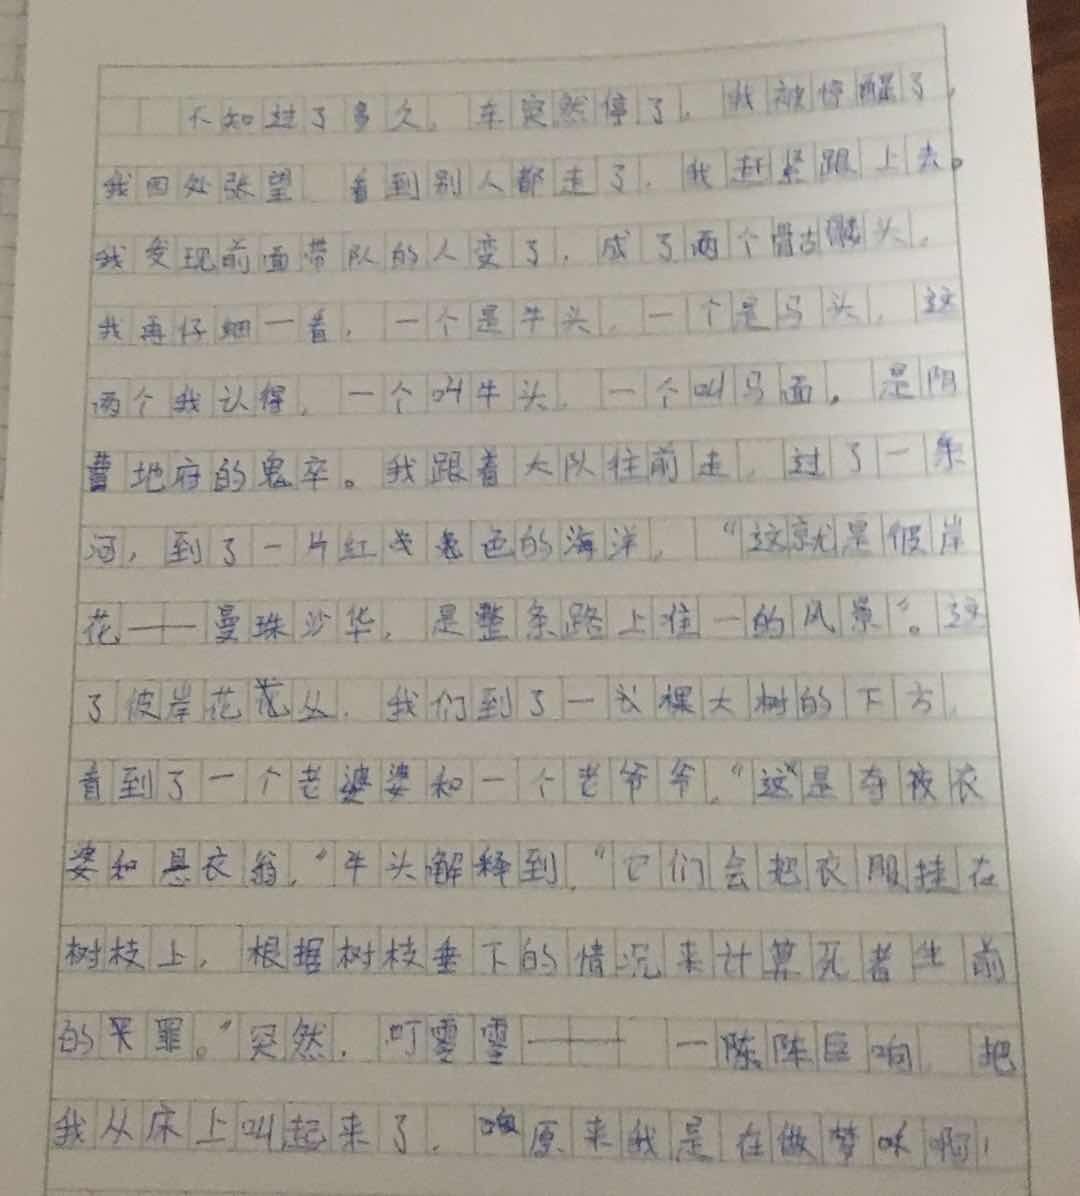 不知过了多久，车突然停了，我被惊醒了，
我四处张望，看到别人都走了，我赶紧跟上去。
我发现前面带队的人变了，成了两个骨古髅头，
我再仔细一看，一个是牛头，一个是马头，这
两个我认得，一个叫牛头，一个叫马面，是阴
曹地府的鬼卒。我跟着大队往前走，过了一条
河，到了一片红色的海洋，“这就是彼岸
花——曼珠沙华，是整条路上唯一的风景”。过
了彼岸花花丛，我们到了一棵大树的下方，
看到了一个老婆婆和一个老爷爷，“这是夺衣
婆和悬衣翁，”牛头解释到，“它们会把衣服挂在
树枝上，根据树枝垂下的情况来计算死者生前
的罪。”突然，叮零零—— 一陈阵巨响，把
我从床上叫起来了，原来我是在做梦呀啊！